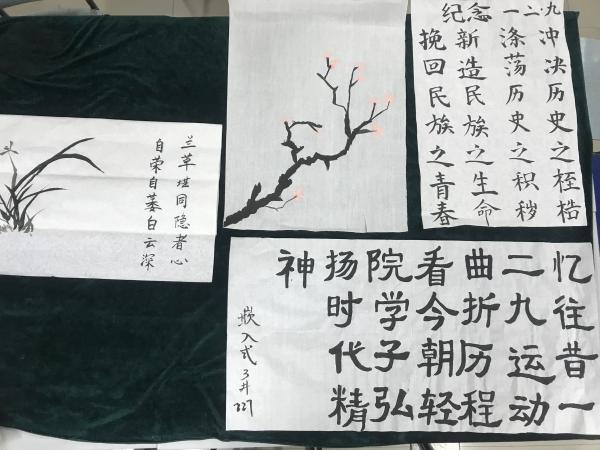 纪念一二九
冲决历史之桎梏
涤荡历史之积秽
新造民族之生命
挽回民族之青春
兰草堪同隐者心
自荣自萎白云深
忆往昔一
二九运动
曲折历程
看今朝轻
院学子弘
扬时代精
神
嵌入式3井
227